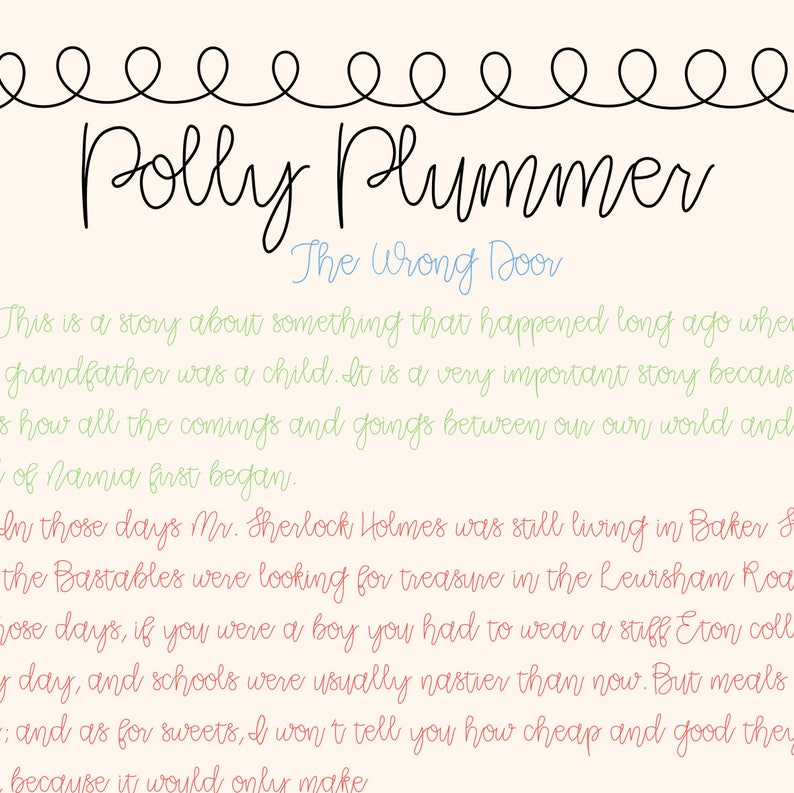 Polly Plummer
The Wrong Door
This is a story about something that happened long ago when
grandfather was a child. It is a very important story becaus
s how all the comings and goings between our own world and
of Narnia first began.
In those days Mr. Sherlock Holmes was still living in Baker S
the Bastables were looking for treasure in the Lewisham Roa
hose days, if you were a boy you had to wear a stiff Eton coll
y day, and schools were usually nastier than now. But meals
; and as for sweets, I won't tell you how cheap and good they
because it would only make